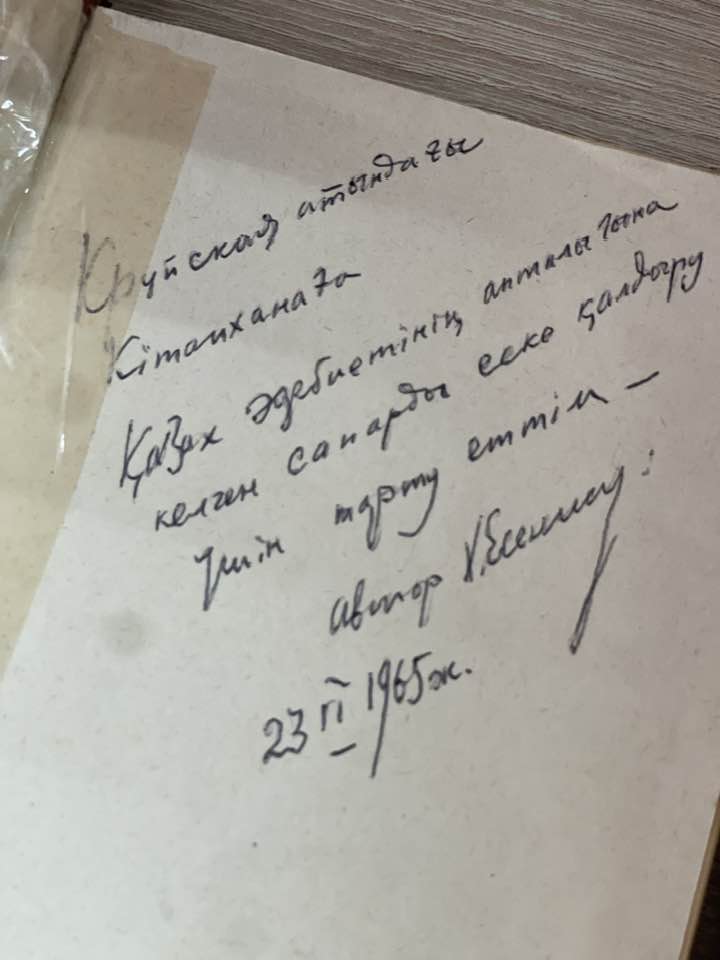 Крупская атындағы
Кітапханаға
Қазақ әдебиетінің апталығына
келген сапарды еске қалдыру
үшін тарту еттім —
автор
23 II 1965 ж.